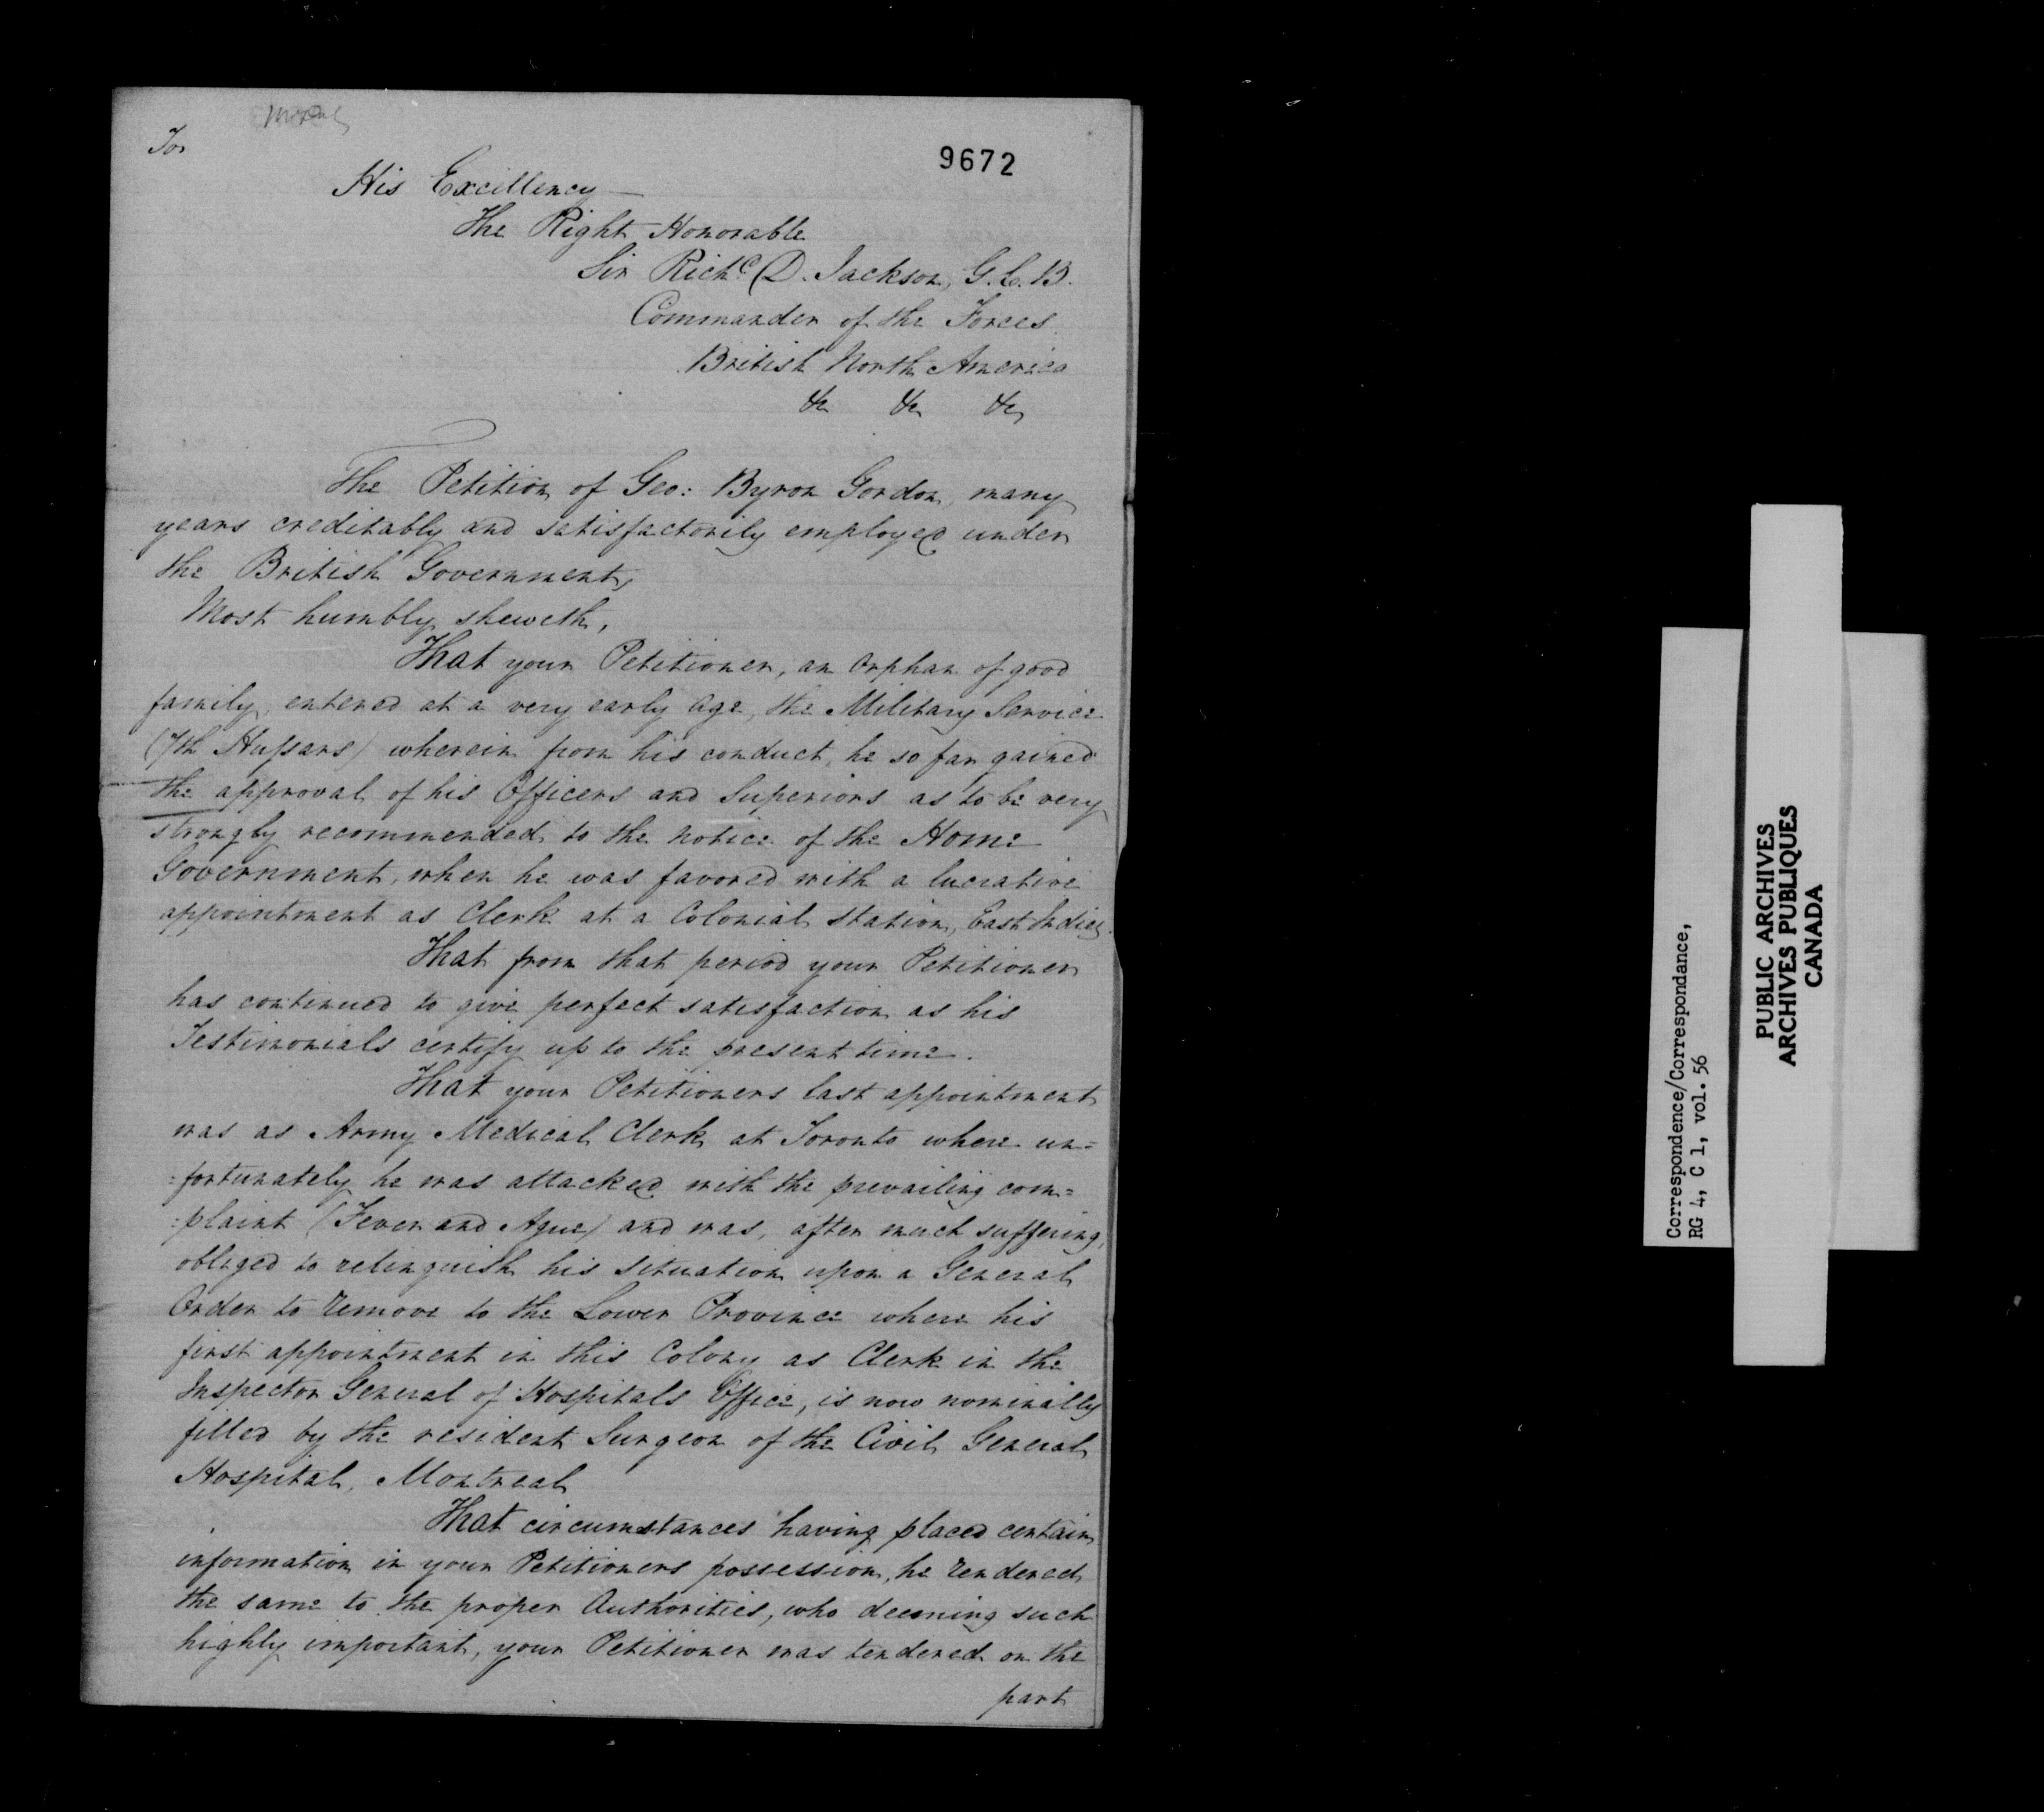 To
9672
His Excellency
The Right Honorable
Sir Richd. D. Jackson, G.C.B.
Commander of the Forces
British North America
&c &c &c
The Petition of Geo: Byron Gordon, many
years creditably and satisfactorily employed under
the British Government,
Most humbly sheweth,
That your Petitioner, an Orphan of good
family, entered at a very early age, the Military Service
(7th Hussars) wherein from his conduct, he so far gained
the approval of his Officers and Superiors as to be very
strongly recommended to the notice of the Home
Government, when he was favored with a lucrative
appointment as Clerk at a Colonial Station, East Indies.
That from that period your Petitioner
has continued to give perfect satisfaction as his
Testimonials certify up to the present time.
That your Petitioners last appointment
was as Army Medical Clerk at Toronto where un=
=fortunately he was attacked with the prevailing com=
=plaint (Fever and Ague) and was, after much suffering,
obliged to relinquish his situation upon a General
Order to remove to the Lower Province where his
first appointment in this Colony as Clerk in the
Inspector General of Hospitals Office, is now nominally
filled by the resident Surgeon of the Civil General
Hospital, Montreal
That circumstances having placed certain
information in your Petitioners possession, he rendered
the same to the proper Authorities, who deeming such
highly important, your Petitioner was tendered on the
part
Correspondence/Correspondance,
RG 4, C 1, vol. 56
PUBLIC ARCHIVES
ARCHIVES PUBLIQUES
CANADA